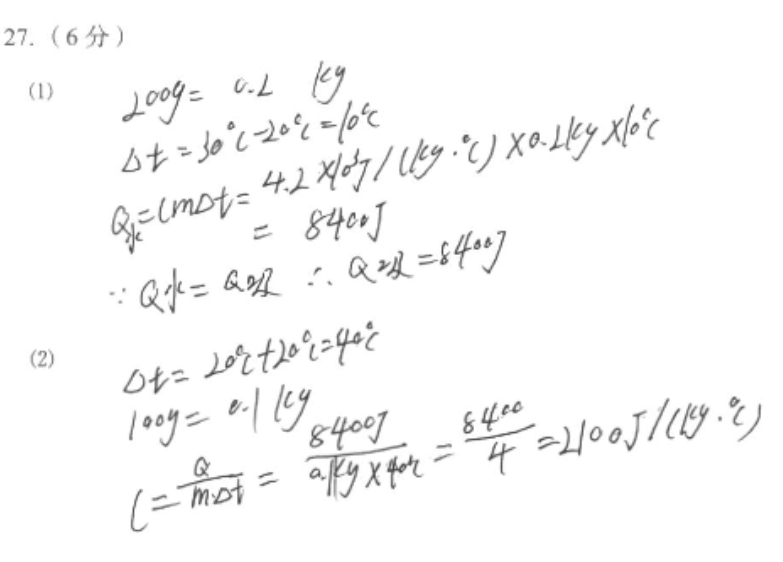 27.（6分）
(1)
200g= 0.2 kg
Δt=30℃-20℃=10℃
Q水=cmΔt=4.2×10³J/(kg·℃)×0.2kg×10℃
= 8400J
∵Q水=Q吸 ∴Q吸=8400J
(2)
Δt=20℃+20℃=40℃
100g=0.1kg
C=Q/mΔt=8400J/0.1kg×40℃=8400/4=2100J/(kg·℃)